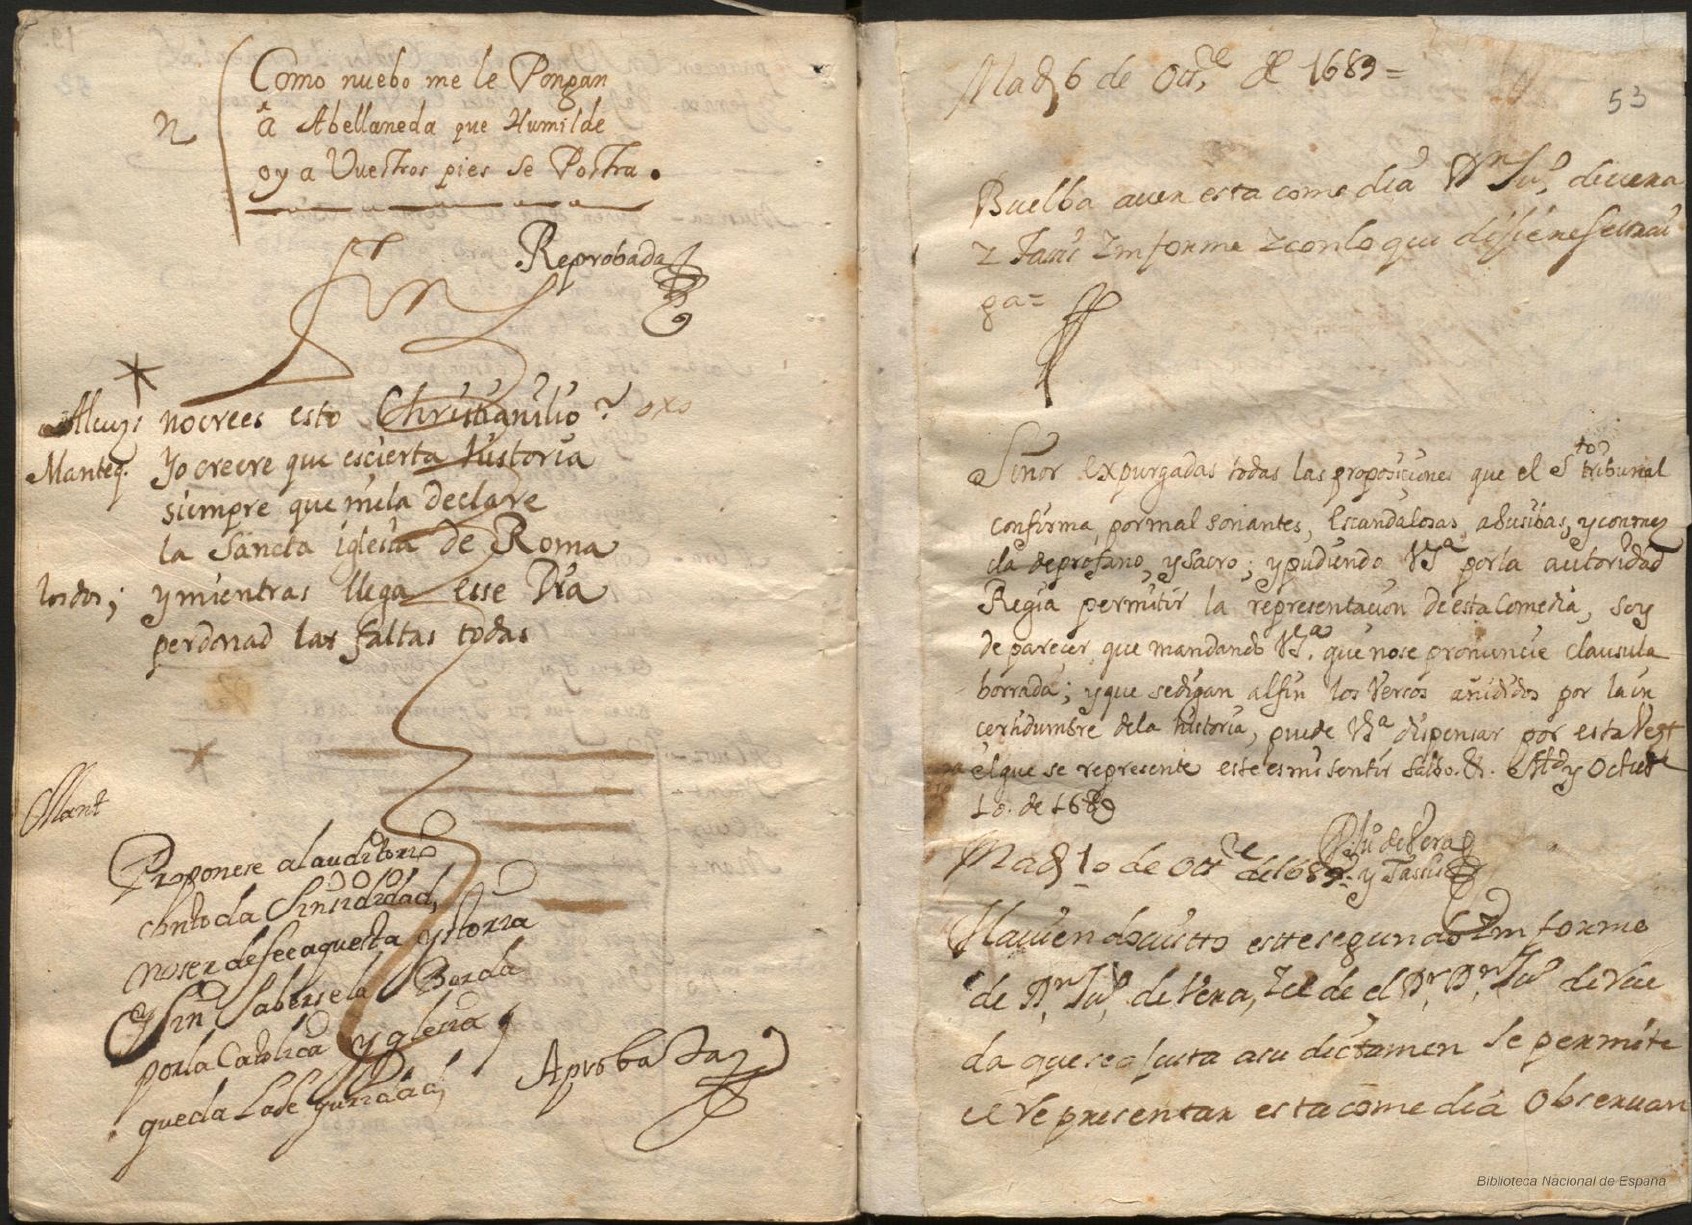 Como nuebo me le Pongan
n
â Abellaneda que Humilde
oy a Vuestros pies se Postra.
Reprobada
Alcuz: no crees esto Christianillo? oxo
Manteq. Yo creere que es cierta historia
siempre que mela declare
la Sancta iglesia de Roma
los dos; y mientras llega esse Dia
perdonad las faltas todas
Mant
Proponese al auditorio
con toda Sinsiridad,
no ser de fee aquesta ystoria
y sin Saberse la
por la Catolica yglesia
queda
Aprobada
Mad 6 de Octre de 1689=
53
Buelba a uer esta comedia Dn Jun de uera
y informe y con lo que dijiere se trai
ga=
Señor expurgadas todas las proposiciones que el Sto tribunal
confirma, por mal sonantes, Escandalosas, abusibas, y con mez
cla de profano, y Sacro; y pudiendo VSa por la autoridad
Regia permitir la representacion de esta Comedia, soy
de parecer, que mandando VSa. que no se pronuncie clausula
borrada; y que se digan al fin los Versos añididos por la in
certidumbre dela historia, puede VSa dispensar por esta Vez
el que se represente este es mi sentir Salbo. &. Md y Octue
10. de 1689
Dn Ju de Vera
y Tassis
Mad 10 de Octre de 1689
Hauiendo uisto este segundo Informe
de Dn Jun de Vera, y el de el Dr. Dn Jun de Rue
da que se ajusta a su dictamen Se permite
el Representar esta comedia Obseruan
Biblioteca Nacional de España